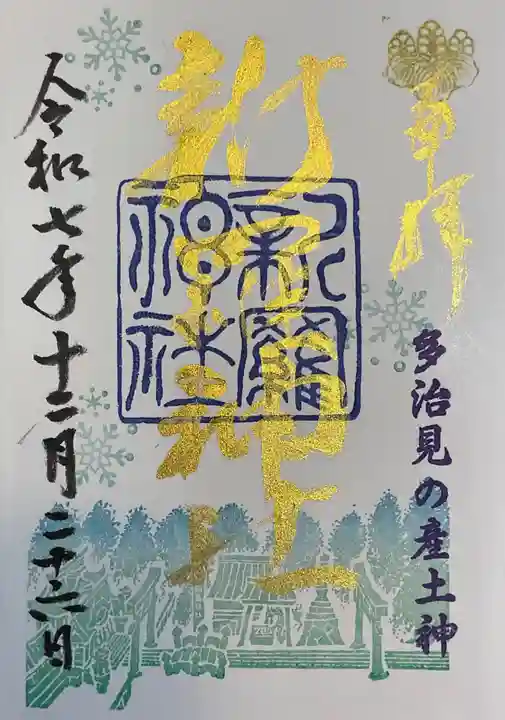 奉拝
多治見の産土神
新羅神社
新羅神社
令和七年十二月二十六日